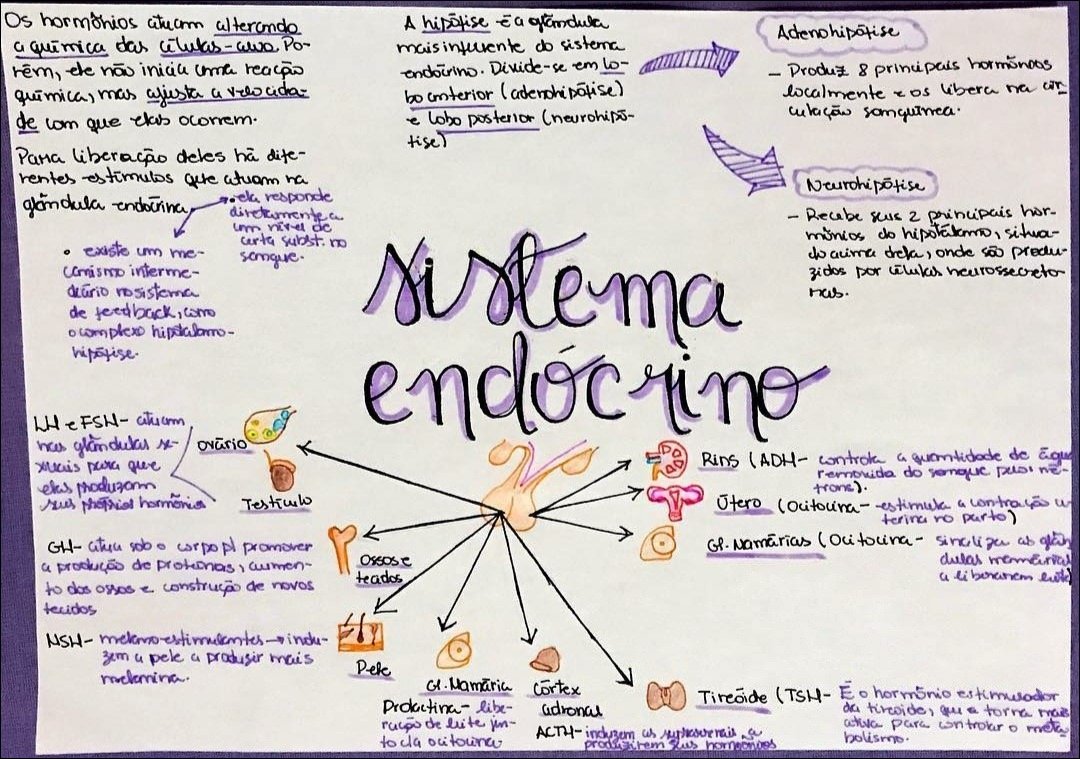 Os hormônios atuam alterando
a química das células-alvo. Po-
rém, ele não inicia uma reação
química, mas ajusta a velocida-
de com que elas ocorrem.
Para liberação deles há dife-
rentes estímulos que atuam na
glândula endócrina
• ela responde
diretamente a
um nível de
certa subst. no
sangue.
• existe um me-
canismo interme-
diário no sistema
de feedback, como
o complexo hipotálamo-
hipófise.
A hipófise é a glândula
mais influente do sistema
endócrino. Divide-se em lo-
bo anterior (adenohipófise)
e lobo posterior (neurohipó-
fise)
Adenohipófise
- Produz 8 principais hormônios
localmente e os libera na cir-
culação sanguínea.
Neurohipófise
- Recebe seus 2 principais hor-
mônios do hipotálamo, situa-
do acima dela, onde são produ-
zidos por células neurossecreto-
ras.
sistema
endócrino
LH e FSH- atuam
nas glândulas se-
xuais para que
elas produzam
seus próprios hormônios
ovário
Testículo
GH- atua sob o corpo p/ promover
a produção de proteínas, aumen-
to dos ossos e construção de novos
tecidos
Ossos e
tecidos
MSH- melano-estimulantes → indu-
zem a pele a produzir mais
melanina.
Pele
Gl. Mamária
Prolactina- libe-
ração de leite jun-
to c/a ocitocina
Córtex
adrenal
ACTH- induzem as suprarrenais a
produzirem seus hormônios
Rins (ADH- controla a quantidade de água
removida do sangue pelos né-
frons).
Útero (Ocitocina- estimula a contração u-
terina no parto)
Gl. Mamárias (Ocitocina- sinaliza as glân
dulas mamárias
a liberarem leite)
Tireóide (TSH- É o hormônio estimulador
da tireóide, que a torna mais
ativa para controlar o meta
bolismo.